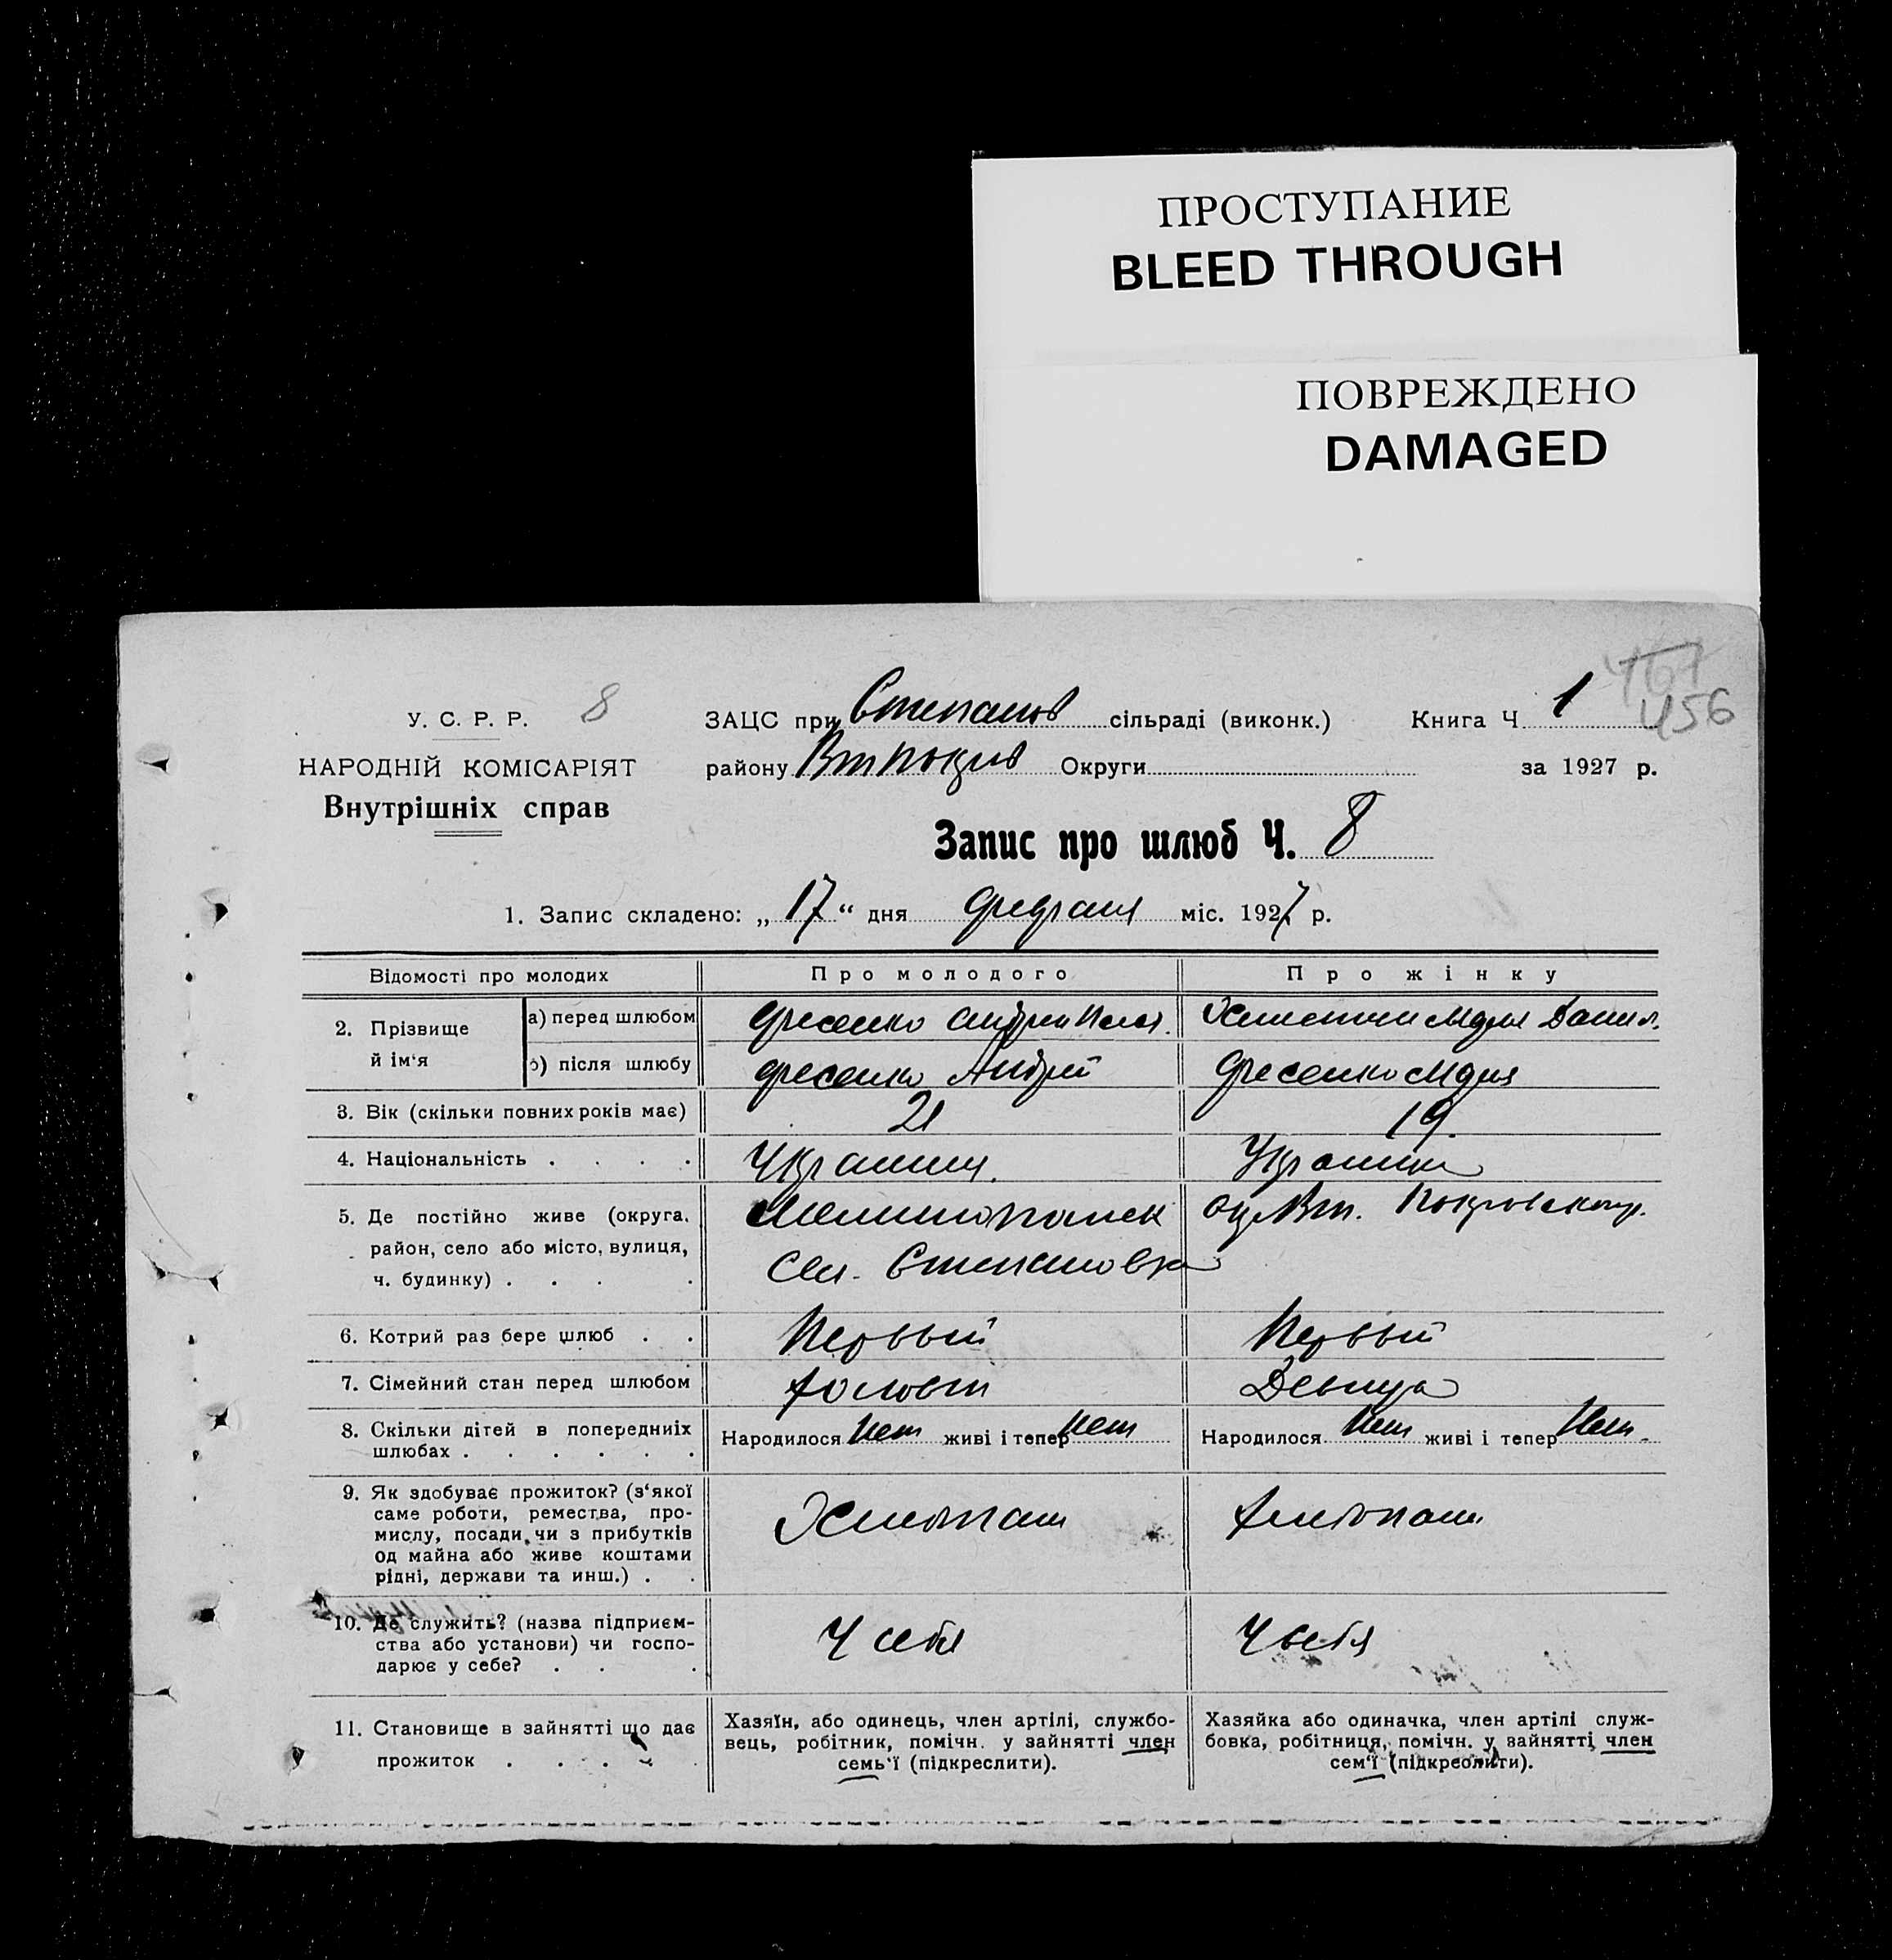 ПРОСТУПАНИЕ
BLEED THROUGH
ПОВРЕЖДЕНО
DAMAGED
456
У. С. Р. Р. 8
НАРОДНІЙ КОМІСАРІЯТ
Внутрішніх справ
ЗАЦС при Степанов сільраді (виконк.) Книга Ч. 1
району Втпокров Округи за 1927 р.
Запис про шлюб Ч. 8
1. Запис складено: „17“ дня февраля міс. 1927 р.
Відомості про молодих Про молодого Про жінку
2. Прізвище й ім‘я
а) перед шлюбом Фесенко Андрей Данил.
б) після шлюбу Фесенко Андрій Фесенко
3. Вік (скільки повних років має) 21 19.
4. Національність . . . . Украинец. Украинка
5. Де постійно живе (округа, Мелитопольск окр. Вт. Покровского р.
район, село або місто, вулиця, Сел. Степановка
ч. будинку) . . . .
6. Котрий раз бере шлюб . . Первый Первый
7. Сімейний стан перед шлюбом холост Девица
8. Скільки дітей в попередниіх Народилося Нет живі і тепер Нет Народилося Нет живі і тепер Нет.
шлюбах . . . . . .
9. Як здобуває прожиток? (з‘якої
саме роботи, ремества, про- Хлебопаш хлебопаш
мислу, посади, чи з прибутків
од майна або живе коштами
рідні, держави та инш.) . .
10. Де служить? (назва підприєм- У себя У себя
ства або установи) чи госпо-
дарює у себе? . . .
11. Становище в зайнятті що дає
прожиток . . . . .
Хазяїн, або одинець, член артілі, службо-
вець, робітник, помічн. у зайнятті член
семь‘ї (підкреслити).
Хазяйка або одиначка, член артілі служ-
бовка, робітниця, помічн. у зайнятті член
сем‘ї (підкреслити).